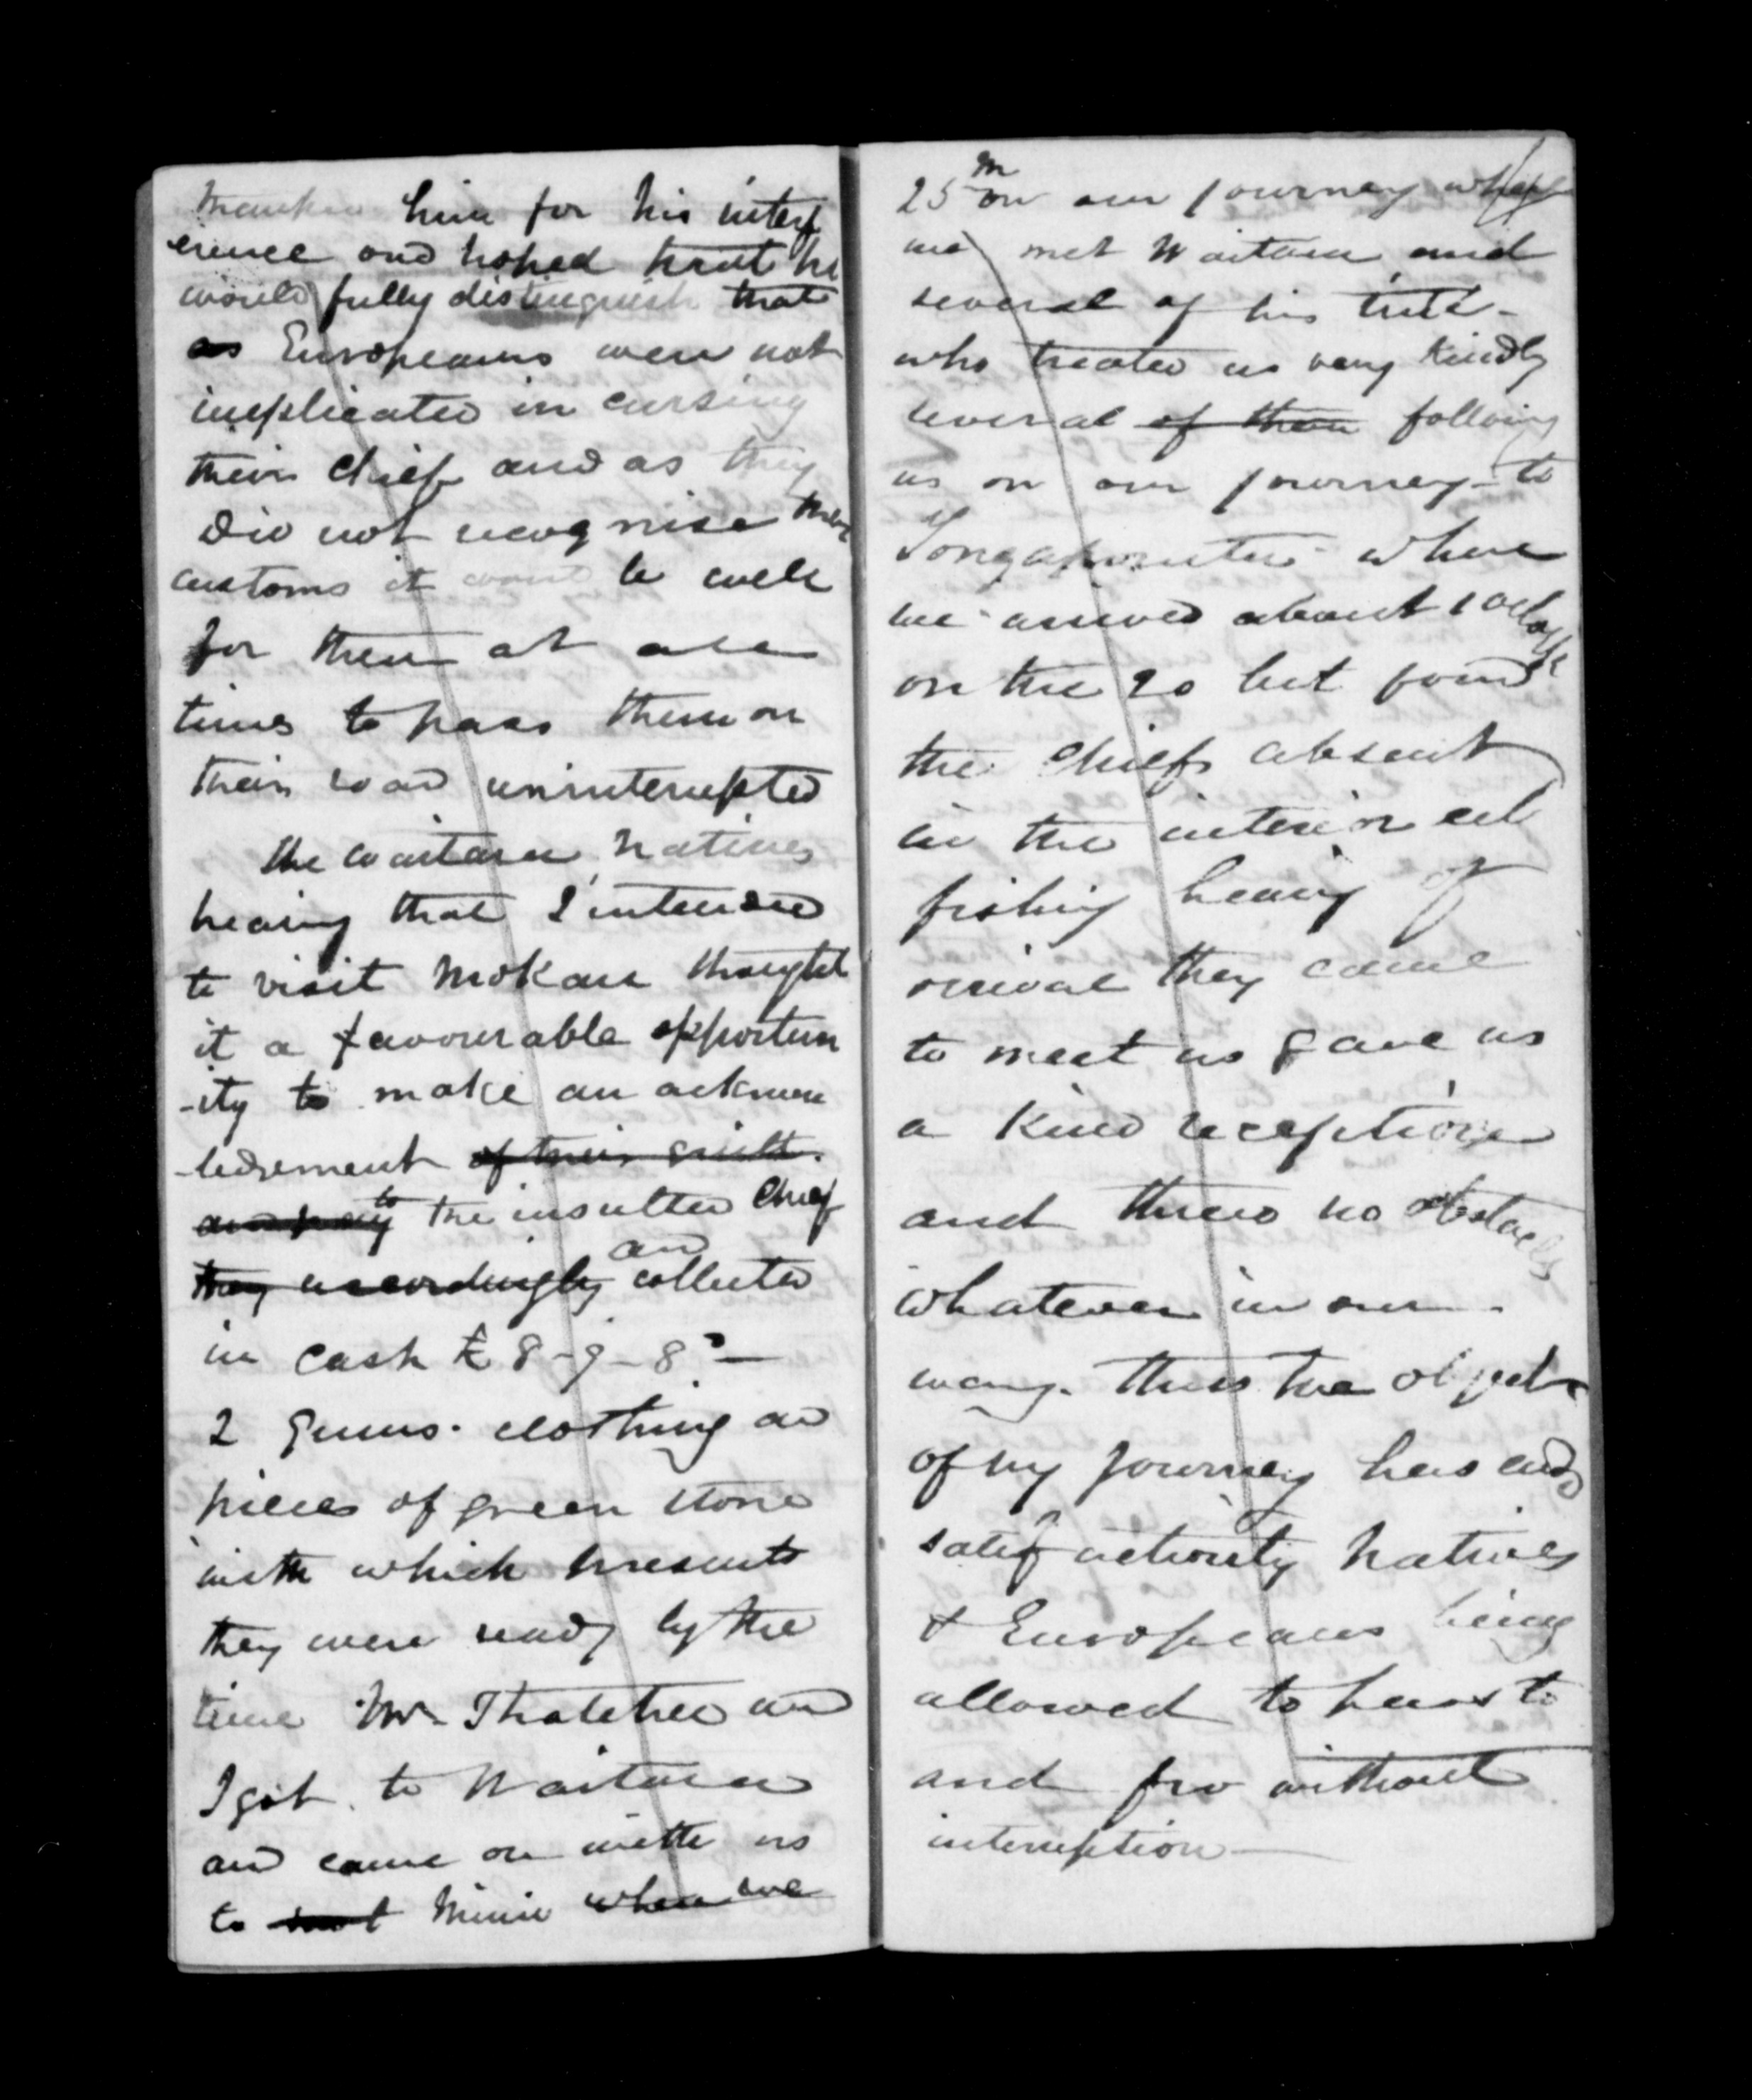 thanked him for his interf
erence and hoped that he
would fully distinguish that
as Europeans were not
implicated in cursing
their chief and as they
did not recognise their
customs it would be well
for them at all
times to pass them on
their road uninterrupted
the Waitara natives
hearing that I intended
to visit Mokau thought
it a favourable opportun
-ity to make an acknow
-ledgement of their guilt.
and pay to the insulted Chief
they accordingly and collected
in cash £8-9-8
2 guns. clothing and
pieces of green stone
with which presents
they were ready by the
time Mr. Thatcher and
I got to Waitara
and came on with us
to meet Mimi when we
25 on our journey
we met Waitara and
several of his tribe
who treated us very kindly
several of them following
us on our journey to
Tongaporutu where
we arrived about 1 oclock
on the 20 but found
the chiefs absent
in the interior eel
fishing hearing of
arrival they came
to meet us gave us
a kind reception
and threw no obstacles
whatever in our
way. thus the object
of my journey has ended
satisfactorily natives
& Europeans being
allowed to pass to
and fro without
interruption